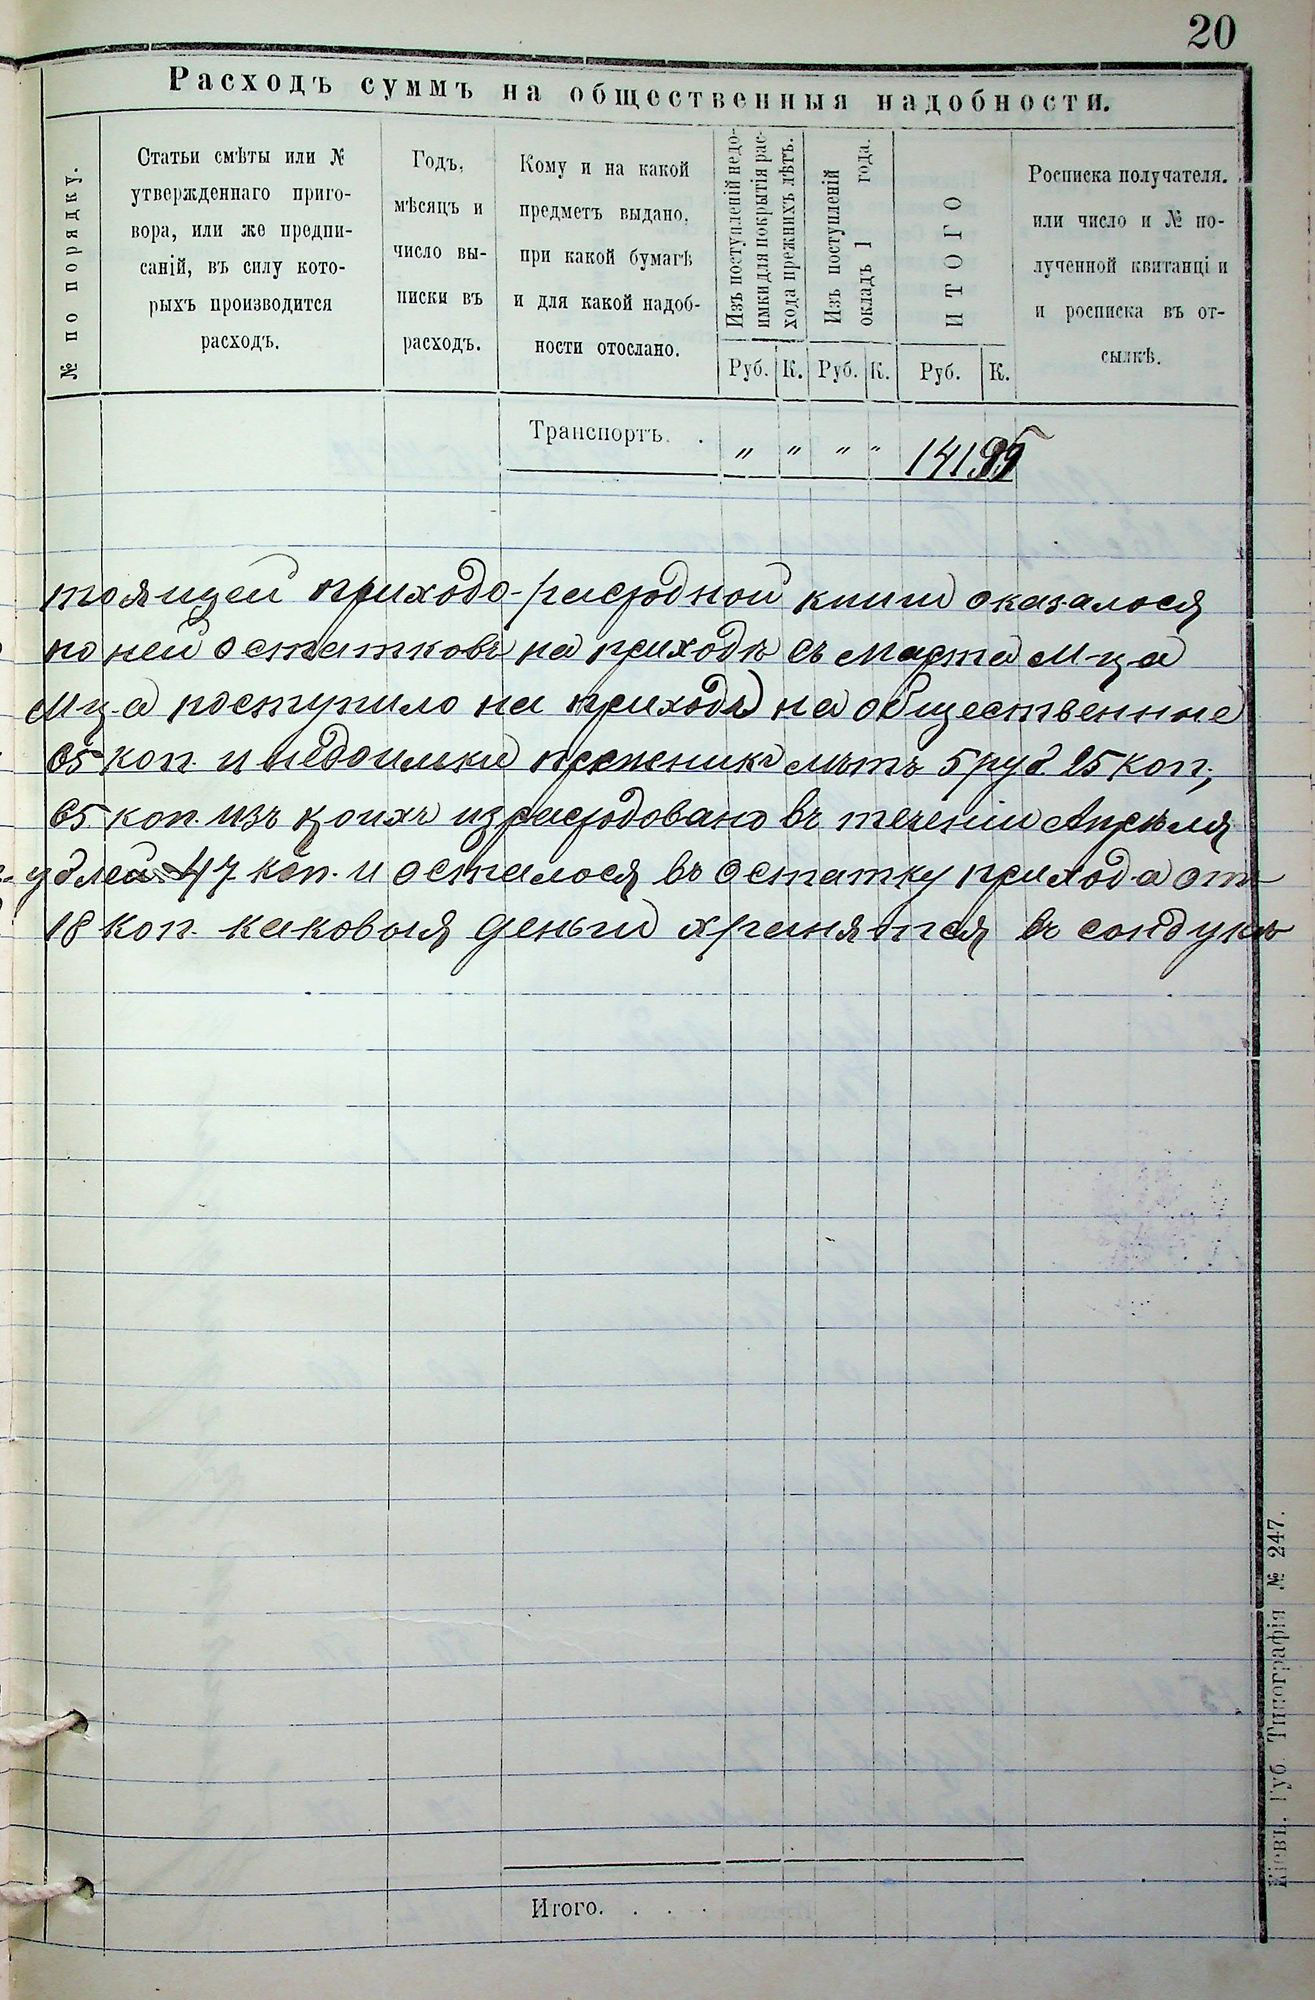 20
Расходъ суммъ на общественныя надобности.
№ по порядку.
Статьи смѣты или №
утвержденнаго приго-
вора, или же предпи-
саній, въ силу кото-
рыхъ производится
расходъ.
Годъ,
мѣсяцъ и
число вы-
писки въ
расходъ.
Кому и на какой
предметъ выдано,
при какой бумагѣ
и для какой надоб-
ности отослано.
Изъ поступленій недо-
имки для покрытія рас-
хода прежнихъ лѣтъ.
Руб. К.
Изъ поступленій
окладъ 1 года.
Руб. К.
ИТОГО
Руб. К.
Росписка получателя.
или число и № по-
лученной квитанціи
и росписка въ от-
сылкѣ.
Транспортъ. . " " " " 141
тоящей приходо-расходной книги оказалося
по ней остатковъ на приходѣ съ марта м-ца
М-ца поступило на приходъ на общественные
65 коп. и недоимки прежникъ лѣтъ 5 руб. 25 коп.,
65 коп. изъ коихъ израсходовано въ теченіи Апрѣля
ублей 47 коп. и осталося въ остатку прихода отъ
18 коп. каковыя деньги хранятся въ сондукѣ
Итого. . . .
Кіевъ. Губ. Типографія № 247.